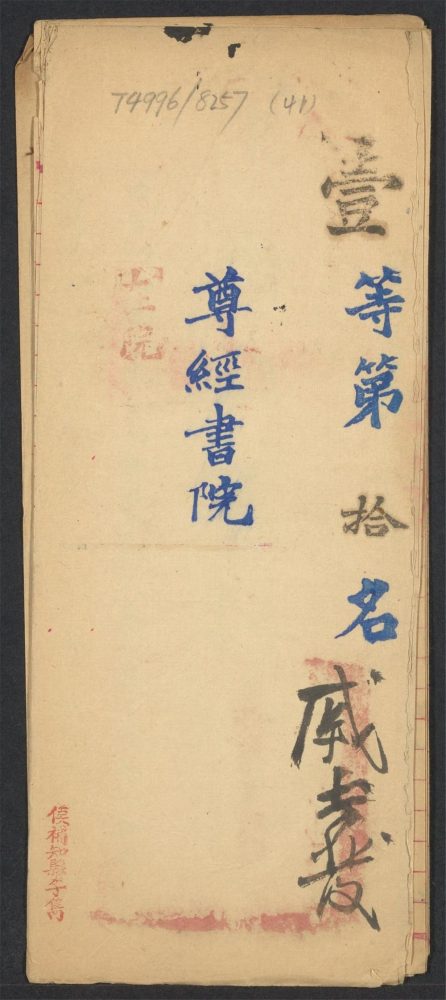 T4996/8257 (41)
壹等第拾名
戚
尊經書院
院
候補知縣李